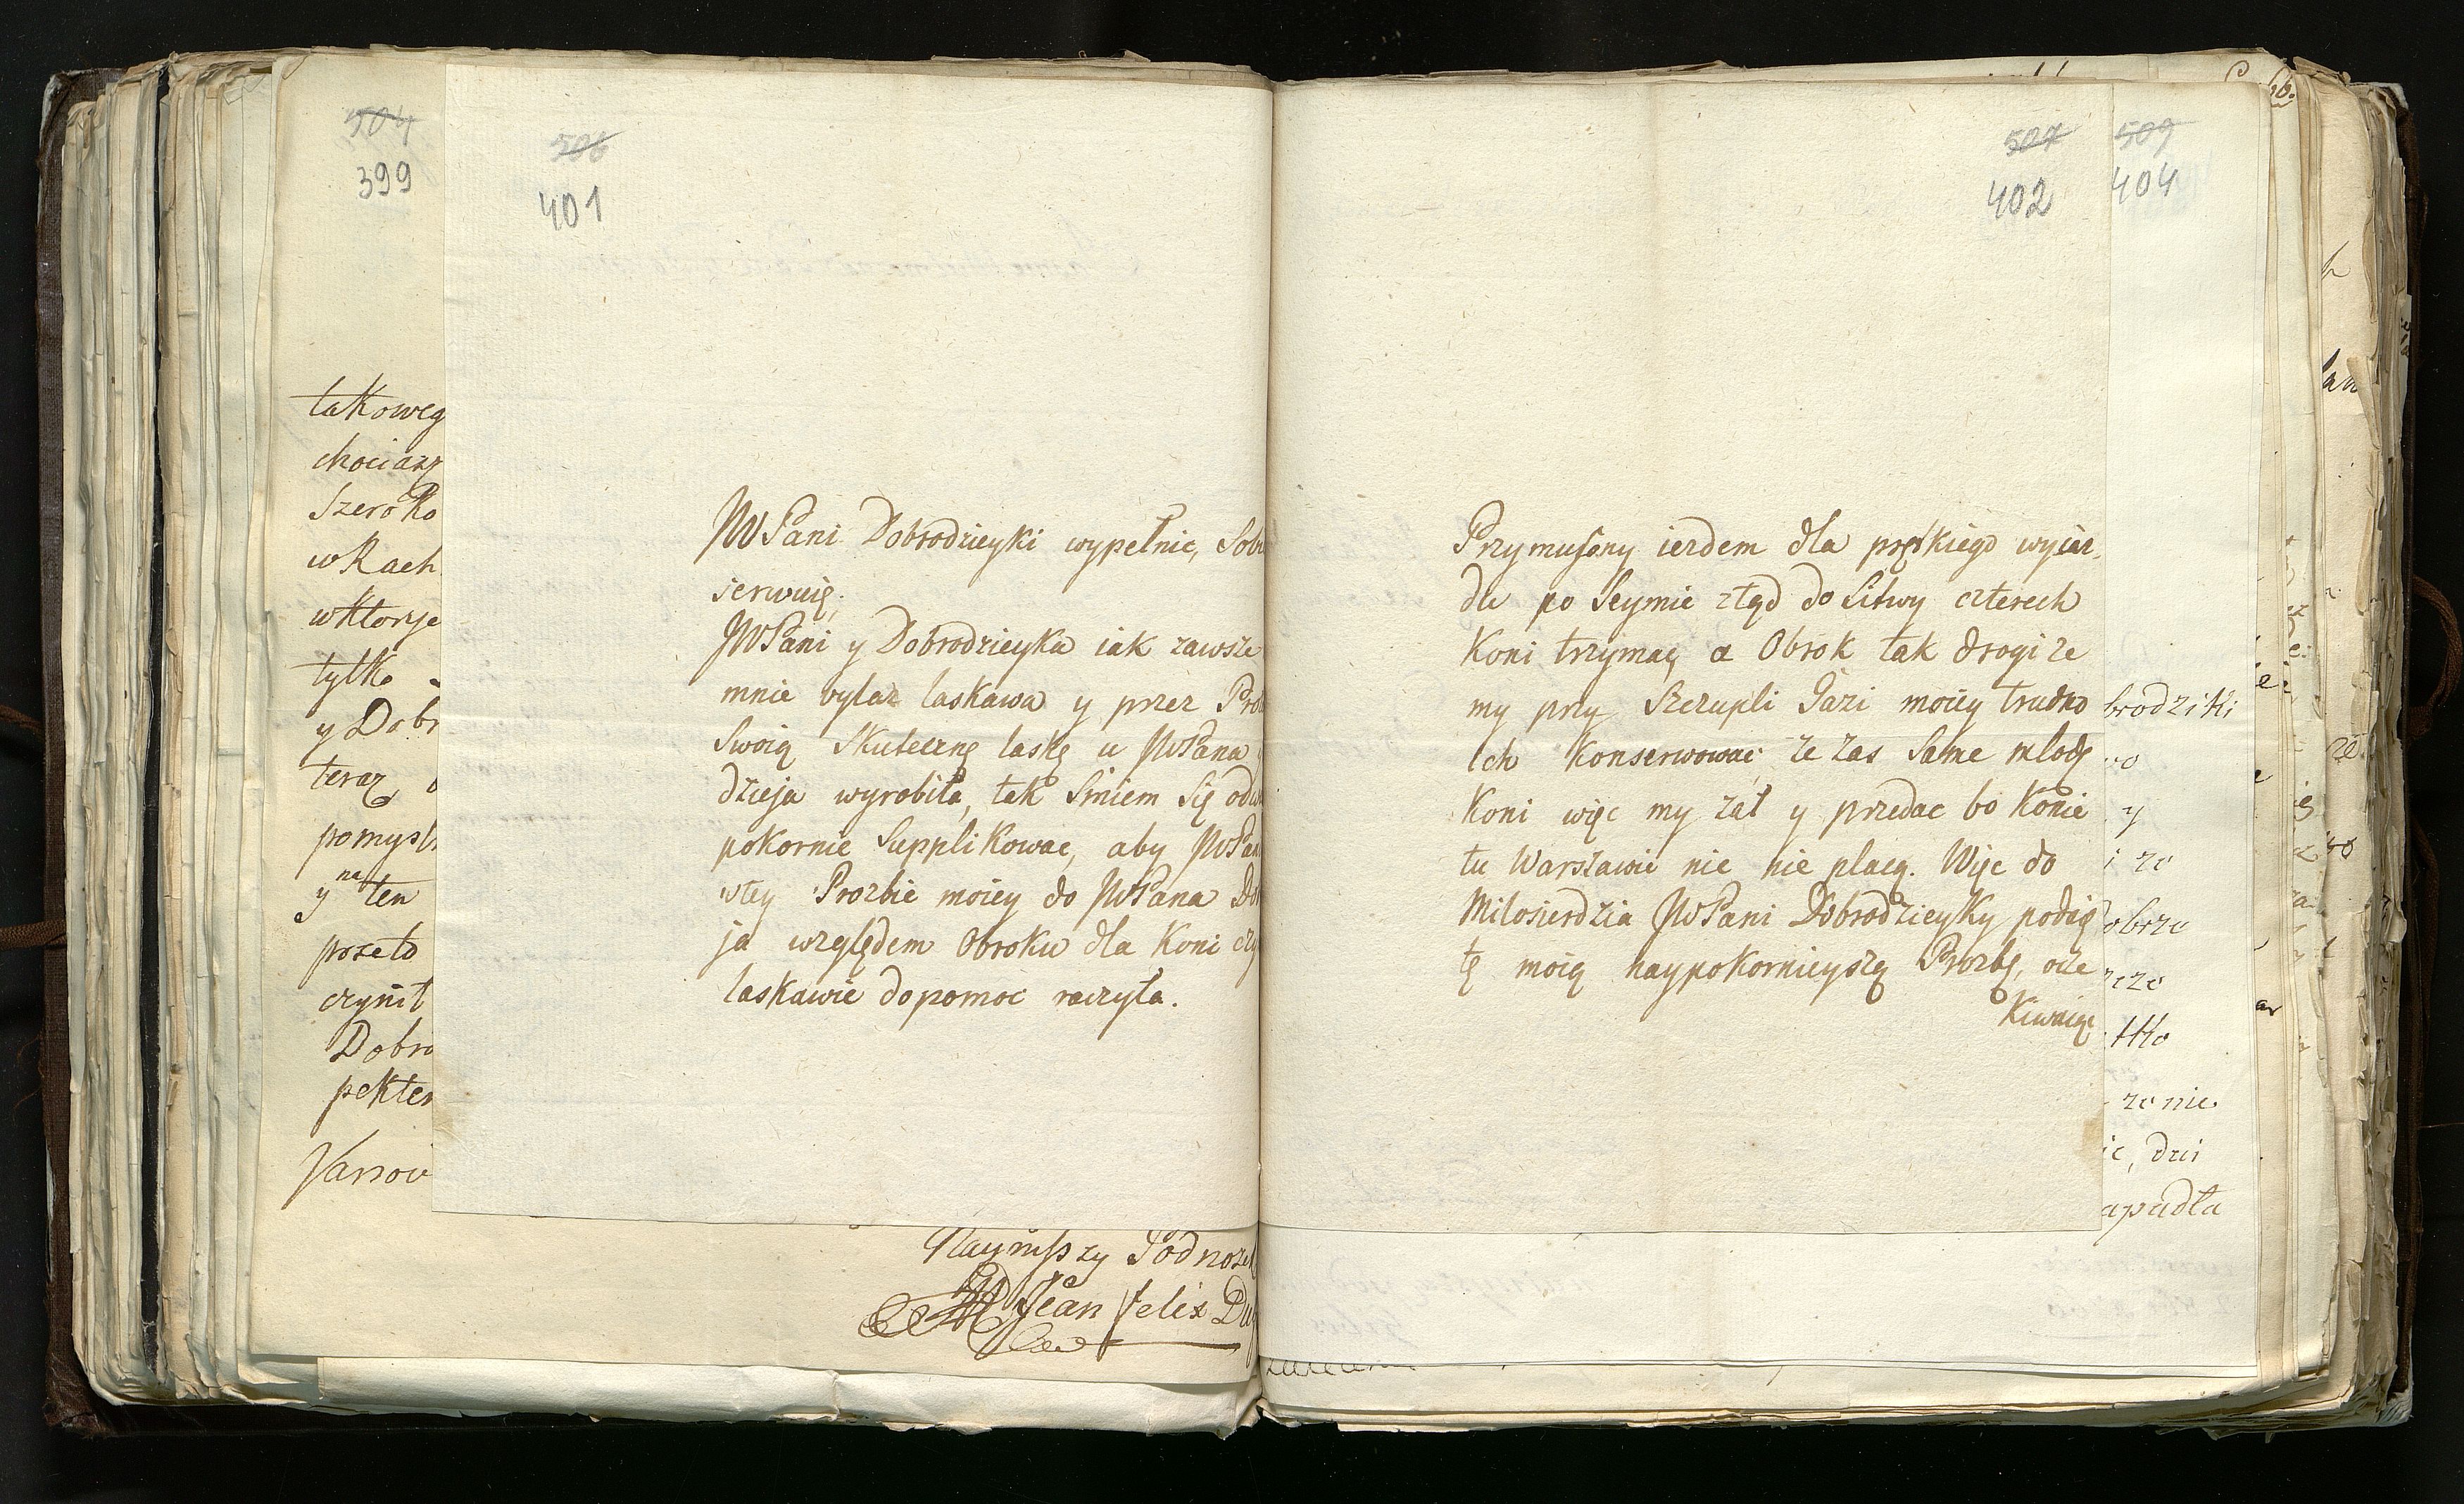 504
399
506
401
takoweg
chociarz
Szeroko
w Rach
wktorye
tylko
y Dobr
teraz
pomysl
y na ten
przeto
czynit
Dobro
pekter
Varsov
JWPani Dobrodzieyki wypełnic, Sob
serwuię.
JWPani y Dobrodzieyka iak zawsze
mnie byłaz łaskawa y przez Pro
Swoią Skuteczną łaskę u JWPana
dzieja wyrobiła, tak Smiem Się odw
pokornie Supplikowac, aby JWPan
wtey Prozbie moiey do JWPana Do
ja względem Obroku dla Koni czy
laskawie dopomoc raczyła.
Nayniszy Podnoze
Jean Felix Du
507
402
Przymuszony iezdem dla prętkiego wyiaz,
du po Seymie ztąd do Litwy czterech
Koni trzymaę a Obrok tak drogi ze
my przy Szczupli Gazi moiey trudno
Ich Konserwowac ze zas Same młodę
Koni więc my zal y przedac bo Konie
tu Warszawie nic nie płacą. Więc do
Milosierdzia JWPani Dobrodzieyky podaię
tę moię naypokornieyszę Prozbę, ocze
Kiwaiąc
509
404
brodziki
y
i ze
obrze
tko
ze nie
ic, dzi
apadła